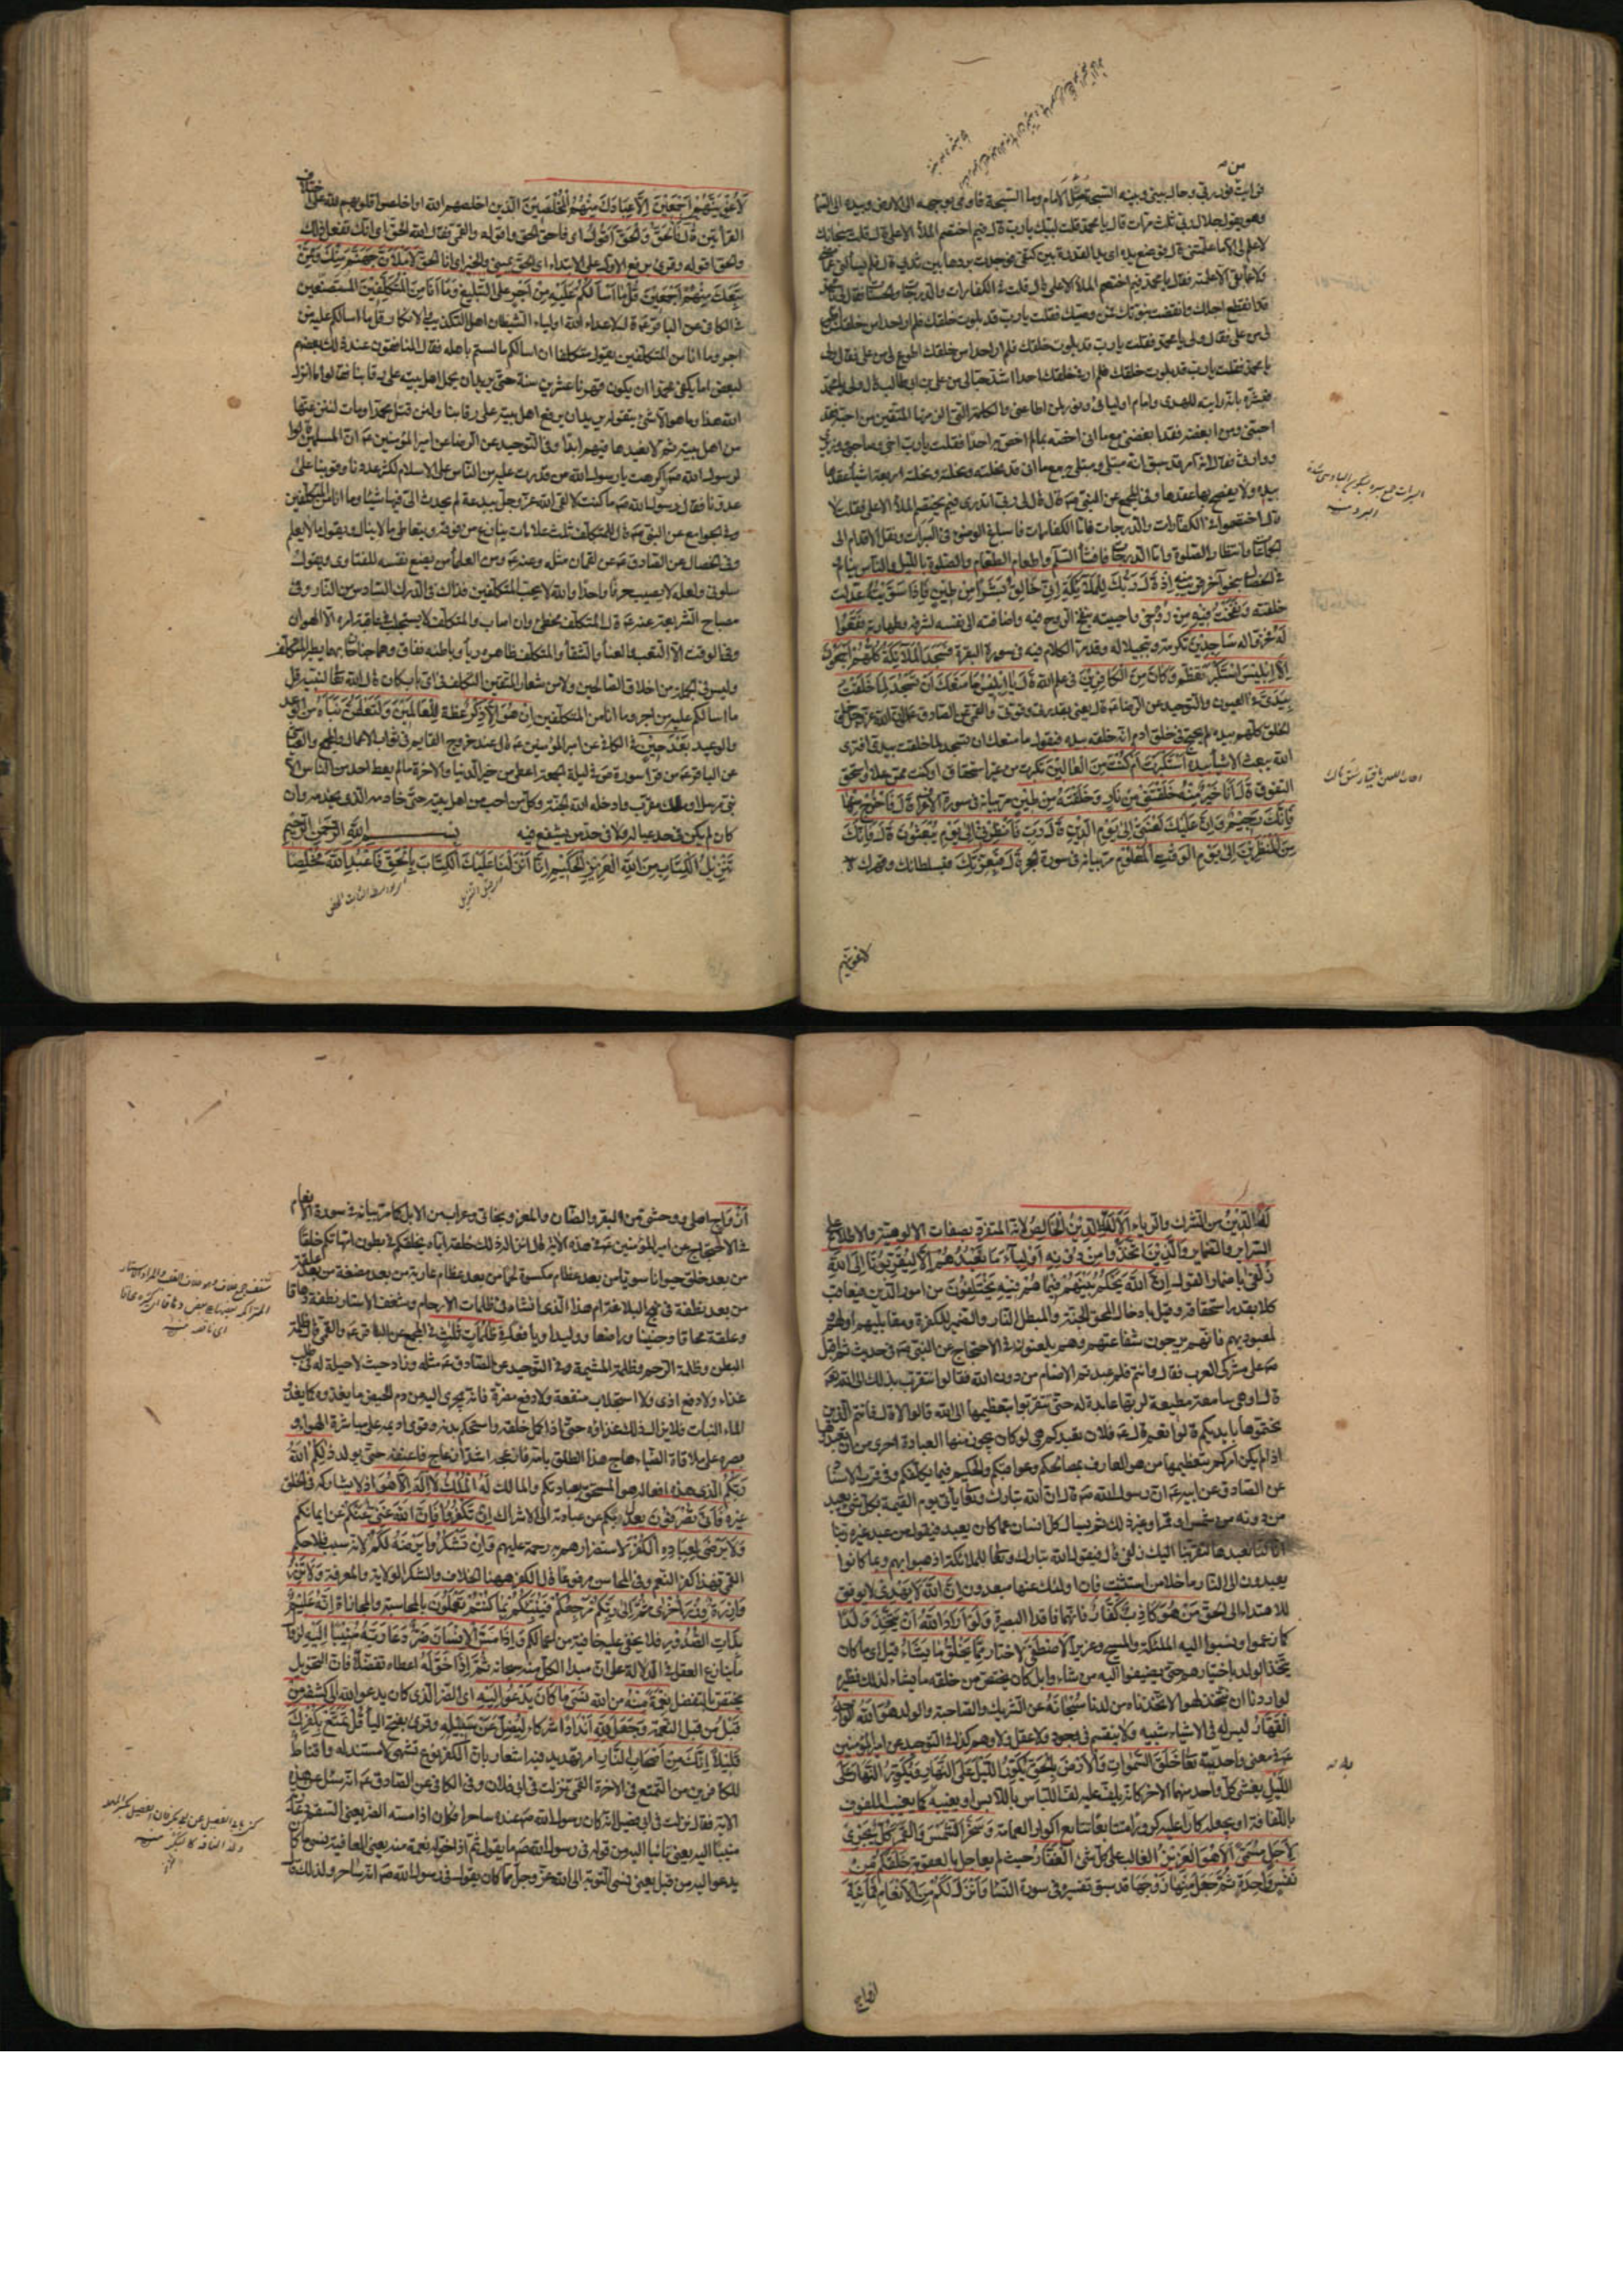 فرايت نور ربي وحال بيني وبينه السبحة قلت الامام وما السبحة فاومى بوجهه الى الارض وبيده الى السماء
وهو يقول جلال ربي ثلث مرات قال يا محمد قلت لبيك يا رب قال فيم اختصم الملأ الاعلى قال قلت سبحانك
لا علم لي الا ما علمتني قال فوضع يده اي يد القدرة بين كتفي فوجدت بردها بين ثديي قال فلم يسألني عما مضى
ولا عما بقي الا علمته فقال يا محمد فيم اختصم الملأ الاعلى قال قلت في الكفارات والدرجات والحسنات فقال لي يا محمد
قد انقطع اجلك وانقضت نبوتك فمن وصيك فقلت يا رب قد بلوت خلقك فلم ار احدا من خلقك اطوع
لي من علي فقال ولي يا محمد فقلت يا رب قد بلوت خلقك فلم ار احدا من خلقك اطوع لي من علي فقال ولي
يا محمد فقلت يا رب قد بلوت خلقك فلم ار في خلقك احدا اشد حبا لي من علي بن ابي طالب قال ولي يا محمد
فبشره بانه راية الهدى وامام اوليائي ونور لمن اطاعني والكلمة التي الزمتها المتقين من احبه فقد
احبني ومن ابغضه فقد ابغضني مع ما اني اخصه بما لم اخص به احدا فقلت يا رب اخي وصاحبي ووزيري
ووارثي فقال انه امر قد سبق انه مبتلى ومبتلى به مع ما اني قد نحلته ونحلته ونحلته ونحلته اربعة اشياء عقدها
بيده ولا يفصح بها عقدها وفي المجمع عن النبي صه قال قال لي ربي اتدري فيم يختصم الملأ الاعلى فقلت لا
قال اختصموا في الكفارات والدرجات فاما الكفارات فاسباغ الوضوء في السبرات ونقل الاقدام الى
الجماعات وانتظار الصلوة بعد الصلوة واما الدرجات فافشاء السلام واطعام الطعام والصلوة بالليل والناس نيام
في الخصال بنحو آخر قريب منه إذ قال ربك للملائكة إني خالق بشرا من طين فإذا سويته عدلت
خلقته ونفخت فيه من روحي واحييته بنفخ الروح فيه واضافته الى نفسه لشرفه وطهارته فقعوا
له فخروا له ساجدين تكرمة وتبجيلا له وقد مر الكلام فيه في سورة البقرة فسجد الملائكة كلهم أجمعون
إلا إبليس استكبر تعظم وكان من الكافرين في علم الله قال يا إبليس ما منعك أن تسجد لما خلقت
بيدي في العيون والتوحيد عن الرضا عه قال يعني بقدرتي وقوتي والقمي عن الصادق عه لو ان الله عز وجل خلق
الخلق كلهم بيده لم يحتج في خلق ادم انه خلقه بيده فيقول ما منعك ان تسجد لما خلقت بيدي افترى
الله يبعث الاشياء بيده أستكبرت أم كنت من العالين تكبرت من غير استحقاق او كنت ممن علا واستحق
التفوق قال أنا خير منه خلقتني من نار وخلقته من طين مر بيانه في سورة الاعراف قال فاخرج منها
فإنك رجيم وإن عليك لعنتي إلى يوم الدين قال رب فأنظرني إلى يوم يبعثون قال فإنك
من المنظرين إلى يوم الوقت المعلوم مر بيانه في سورة الحجر قال فبعزتك فبسلطانك وقهرك لا
لاغوينهم
لأغوينهم أجمعين إلا عبادك منهم المخلصين الذين اخلصهم الله او اخلصوا قلوبهم لله على اختلاف
القراءتين قال فالحق والحق أقول اي فاحق الحق واقوله والقمي فقال الله الحق اي انك تفعل ذلك
والحق اقوله وقرئ برفع الاول على الابتداء اي الحق يميني والخبر اي انا الحق لأملأن جهنم منك وممن
تبعك منهم أجمعين قل ما أسألكم عليه من أجر على التبليغ وما أنا من المتكلفين المتصنعين
في الكافي عن الباقر عه قال لاعداء الله اولياء الشيطان اهل التكذيب والانكار قل ما اسالكم عليه من
اجر وما انا من المتكلفين يقول متكلفا ان اسالكم ما لستم باهله فقال المنافقون عند ذلك بعضهم
لبعض اما يكفي محمدا ان يكون قهرنا عشرين سنة حتى يريد ان يحمل اهل بيته على رقابنا فقالوا ما انزل
الله هذا وما هو الا شئ يتقوله يريد ان يرفع اهل بيته على رقابنا ولئن قتل محمد او مات لننزعنها
من اهل بيته ثم لا نعيدها فيهم ابدا وفي التوحيد عن الرضا عن امير المؤمنين عه ان المسلمين قالوا
لرسول الله صه لو اكرهت يا رسول الله من قدرت عليه من الناس على الاسلام لكثر عددنا وقوينا على
عدونا فقال رسول الله صه ما كنت لالقى الله عز وجل ببدعة لم يحدث الي فيها شيئا وما انا من المتكلفين
وفي الجوامع عن النبي صه قال للمتكلف ثلث علامات ينازع من فوقه ويتعاطى ما لا ينال ويقول ما لا يعلم
وفي الخصال عن الصادق عه عن لقمان مثله وعنه عه ومن العلماء من يضع نفسه للفتاوى ويقول
سلوني ولعله لا يصيب حرفا واحدا والله لا يحب المتكلفين فذاك في الدرك السادس من النار وفي
مصباح الشريعة عنه عه قال المتكلف مخطئ وان اصاب والمتكلف لا يستجلب في عاقبة امره الا الهوان
وفي الوقت الا التعب والعناء والشقاء والمتكلف ظاهره رياء وباطنه نفاق وهما جناحان بهما يطير المتكلف
وليس في الجملة من اخلاق الصالحين ولا من شعار المتقين التكلف في اي باب كان قال الله تعالى لنبيه قل
ما اسالكم عليه من اجر وما انا من المتكلفين إن هو إلا ذكر عظة للعالمين ولتعلمن نبأه من الوعد
والوعيد بعد حين في الكافي عن امير المؤمنين عه قال عند خروج القايم في ثواب الاعمال والمجمع والعياشي
عن الباقر عه من قرا سورة ص في ليلة الجمعة اعطي من خير الدنيا والاخرة ما لم يعط احد من الناس الا
نبي مرسل او ملك مقرب وادخله الله الجنة وكل من احب من اهل بيته حتى خادمه الذي يخدمه وان
كان لم يكن في حد عياله ولا في حد من يشفع فيه بسم الله الرحمن الرحيم
تنزيل الكتاب من الله العزيز الحكيم إنا أنزلنا عليك الكتاب بالحق فاعبد الله مخلصا
له الدين من الشرك والرياء ألا لله الدين الخالص لانه المتفرد بصفات الالوهية والاطلاع على
السراير والضماير والذين اتخذوا من دونه أولياء ما نعبدهم إلا ليقربونا إلى الله
زلفى باضمار القول إن الله يحكم بينهم فيما هم فيه يختلفون من امور الدين فيعاقب
كلا بقدر استحقاقه وقيل بادخال المحق الجنة والمبطل النار والضمير للكفرة ومقابليهم او لهم
لمعبوديهم فانهم يرجون شفاعتهم وهم يلعنونه في الاحتجاج عن النبي صه في حديث ثم اقبل
صه على مشركي العرب فقال وانتم فلم عبدتم الاصنام من دون الله فقالوا نتقرب بذلك الى الله تعالى
قال او هي سامعة مطيعة لربها عابدة له حتى تتقربوا بتعظيمها الى الله قالوا لا قال فانتم الذين
نحتموها بايديكم قالوا نعم قال فلان تعبدكم هي لو كان يجوز منها العبادة احرى من ان تعبدوها
اذا لم يكن امركم بتعظيمها من هو العارف بمصالحكم وعواقبكم والحكيم فيما يكلفكم وفي قرب الاسناد
عن الصادق عن ابيه عه ان رسول الله صه قال ان الله تبارك وتعالى ياتي يوم القيمة بكل شئ يعبد
من دونه من شمس او قمر او غير ذلك ثم يسال كل انسان عما كان يعبد فيقول من عبد غيره ربنا
انا كنا نعبدها لتقربنا اليك زلفى قال فيقول الله تبارك وتعالى للملائكة اذهبوا بهم وبما كانوا
يعبدون الى النار ما خلا من استثنيت فان اولئك عنها مبعدون إن الله لا يهدي لا يوفق
للاهتداء الى الحق من هو كاذب كفار فانهما فاقدا البصيرة ولو أراد الله أن يتخذ ولدا
كما زعموا ونسبوا اليه الملئكة والمسيح وعزيرا لاصطفى لاختار مما يخلق ما يشاء قيل اي ما كان
يتخذ الولد باختيارهم حتى يضيفوا اليه من شاؤا بل كان يختص من خلقه ما يشاء لذلك نظيره
لو اردنا ان نتخذ لهوا لاتخذناه من لدنا سبحانه عن الشريك والصاحبة والولد هو الله الواحد
القهار ليس له في الاشياء شبيه ولا ينقسم في وجود ولا عقل ولا وهم كذا في التوحيد عن امير المؤمنين
عه في معنى واحديته تعالى خلق السموات والأرض بالحق يكور الليل على النهار ويكور النهار على
الليل يغشي كل واحد منهما الاخر كانه يلفه عليه لف اللباس باللابس او يغيبه كما يغيب الملفوف
باللفافة او يجعله كارا عليه كرورا متتابعا تتابع اكوار العمامة وسخر الشمس والقمر كل يجري
لأجل مسمى ألا هو العزيز الغالب على كل شئ الغفار حيث لم يعاجل بالعقوبة خلقكم من
نفس واحدة ثم جعل منها زوجها قد سبق تفسيره في سورة النساء وأنزل لكم من الأنعام ثمانية
ازواج
أزواج اهلي ووحشي من البقر والضان والمعز وبخاتي وعراب من الابل كما مر بيانه في سورة الانعام
في الاحتجاج عن امير المؤمنين عه في هذه الاية قال انزاله ذلك خلقه اياه يخلقكم في بطون أمهاتكم خلقا
من بعد خلق حيوانا سويا من بعد عظام مكسوة لحما من بعد عظام عارية من بعد مضغة من بعد علقة
من بعد نطفة في نهج البلاغة ام هذا الذي انشاه في ظلمات الارحام وشغف الاستار نطفة دهاقا
وعلقة محاقا وجنينا وراضعا ووليدا ويافعا في ظلمات ثلث في المجمع عن الباقر عه والقمي قال ظلمة
البطن وظلمة الرحم وظلمة المشيمة وفي التوحيد عن الصادق عه مثله وزاد حيث لا حيلة له في طلب
غذاء ولا دفع اذى ولا استجلاب منفعة ولا دفع مضرة فانه يجري اليه من دم الحيض ما يغذوه كما يغذو
الماء النبات فلا يزال ذلك غذاؤه حتى اذا كمل خلقه واستحكم بدنه وقوي اديمه على مباشرة الهواء و
بصره على ملاقاة الضياء هاج هذا الطلق بامه فازعجه اشد ازعاج فاعنفه حتى يولد ذلكم الله
ربكم الذي هذه افعاله هو المستحق لعبادتكم والمالك له الملك لا إله إلا هو اذ لا يشاركه في الخلق
غيره فأنى تصرفون يعدل بكم عن عبادته الى الاشراك إن تكفروا فإن الله غني عنكم عن ايمانكم
ولا يرضى لعباده الكفر لاستضرارهم به رحمة عليهم وإن تشكروا يرضه لكم لانه سبب فلاحكم
القمي فهذا كفر النعم وفي المحاسن مرفوعا قال الكفر ههنا الخلاف والشكر الولاية والمعرفة ولا تزر
وازرة وزر أخرى ثم إلى ربكم مرجعكم فينبئكم بما كنتم تعملون بالمحاسبة والمجازاة إنه عليم
بذات الصدور فلا يخفى عليه خافية من اعمالكم وإذا مس الإنسان ضر دعا ربه منيبا إليه لزوال
ما ينازع العقل في الدلالة على ان مبدأ الكل منه سبحانه ثم إذا خوله اعطاه تفضلا فان التخويل
مختص بالتفضل نعمة منه من الله نسي ما كان يدعو إليه اي الضر الذي كان يدعو الله الى كشفه من
قبل من قبل النعمة وجعل لله أندادا شركاء ليضل عن سبيله وقرئ بفتح الياء قل تمتع بكفرك
قليلا إنك من أصحاب النار امر تهديد فيه اشعار بان الكفر نوع تشهي لا مستند له واقناط
للكافرين من التمتع في الاخرة القمي نزلت في ابي فلان وفي الكافي عن الصادق عه انه سئل عن هذه
الاية فقال نزلت في ابي فصيل انه كان رسول الله صه عنده ساحرا فكان اذا مسه الضر يعني السقم دعا ربه
منيبا اليه يعني تائبا اليه من قوله في رسول الله صه ما يقول ثم اذا خوله نعمة منه يعني العافية نسي ما كان
يدعو اليه من قبل يعني نسي التوبة الى الله عز وجل مما كان يقول في رسول الله صه انه ساحر ولذلك قال